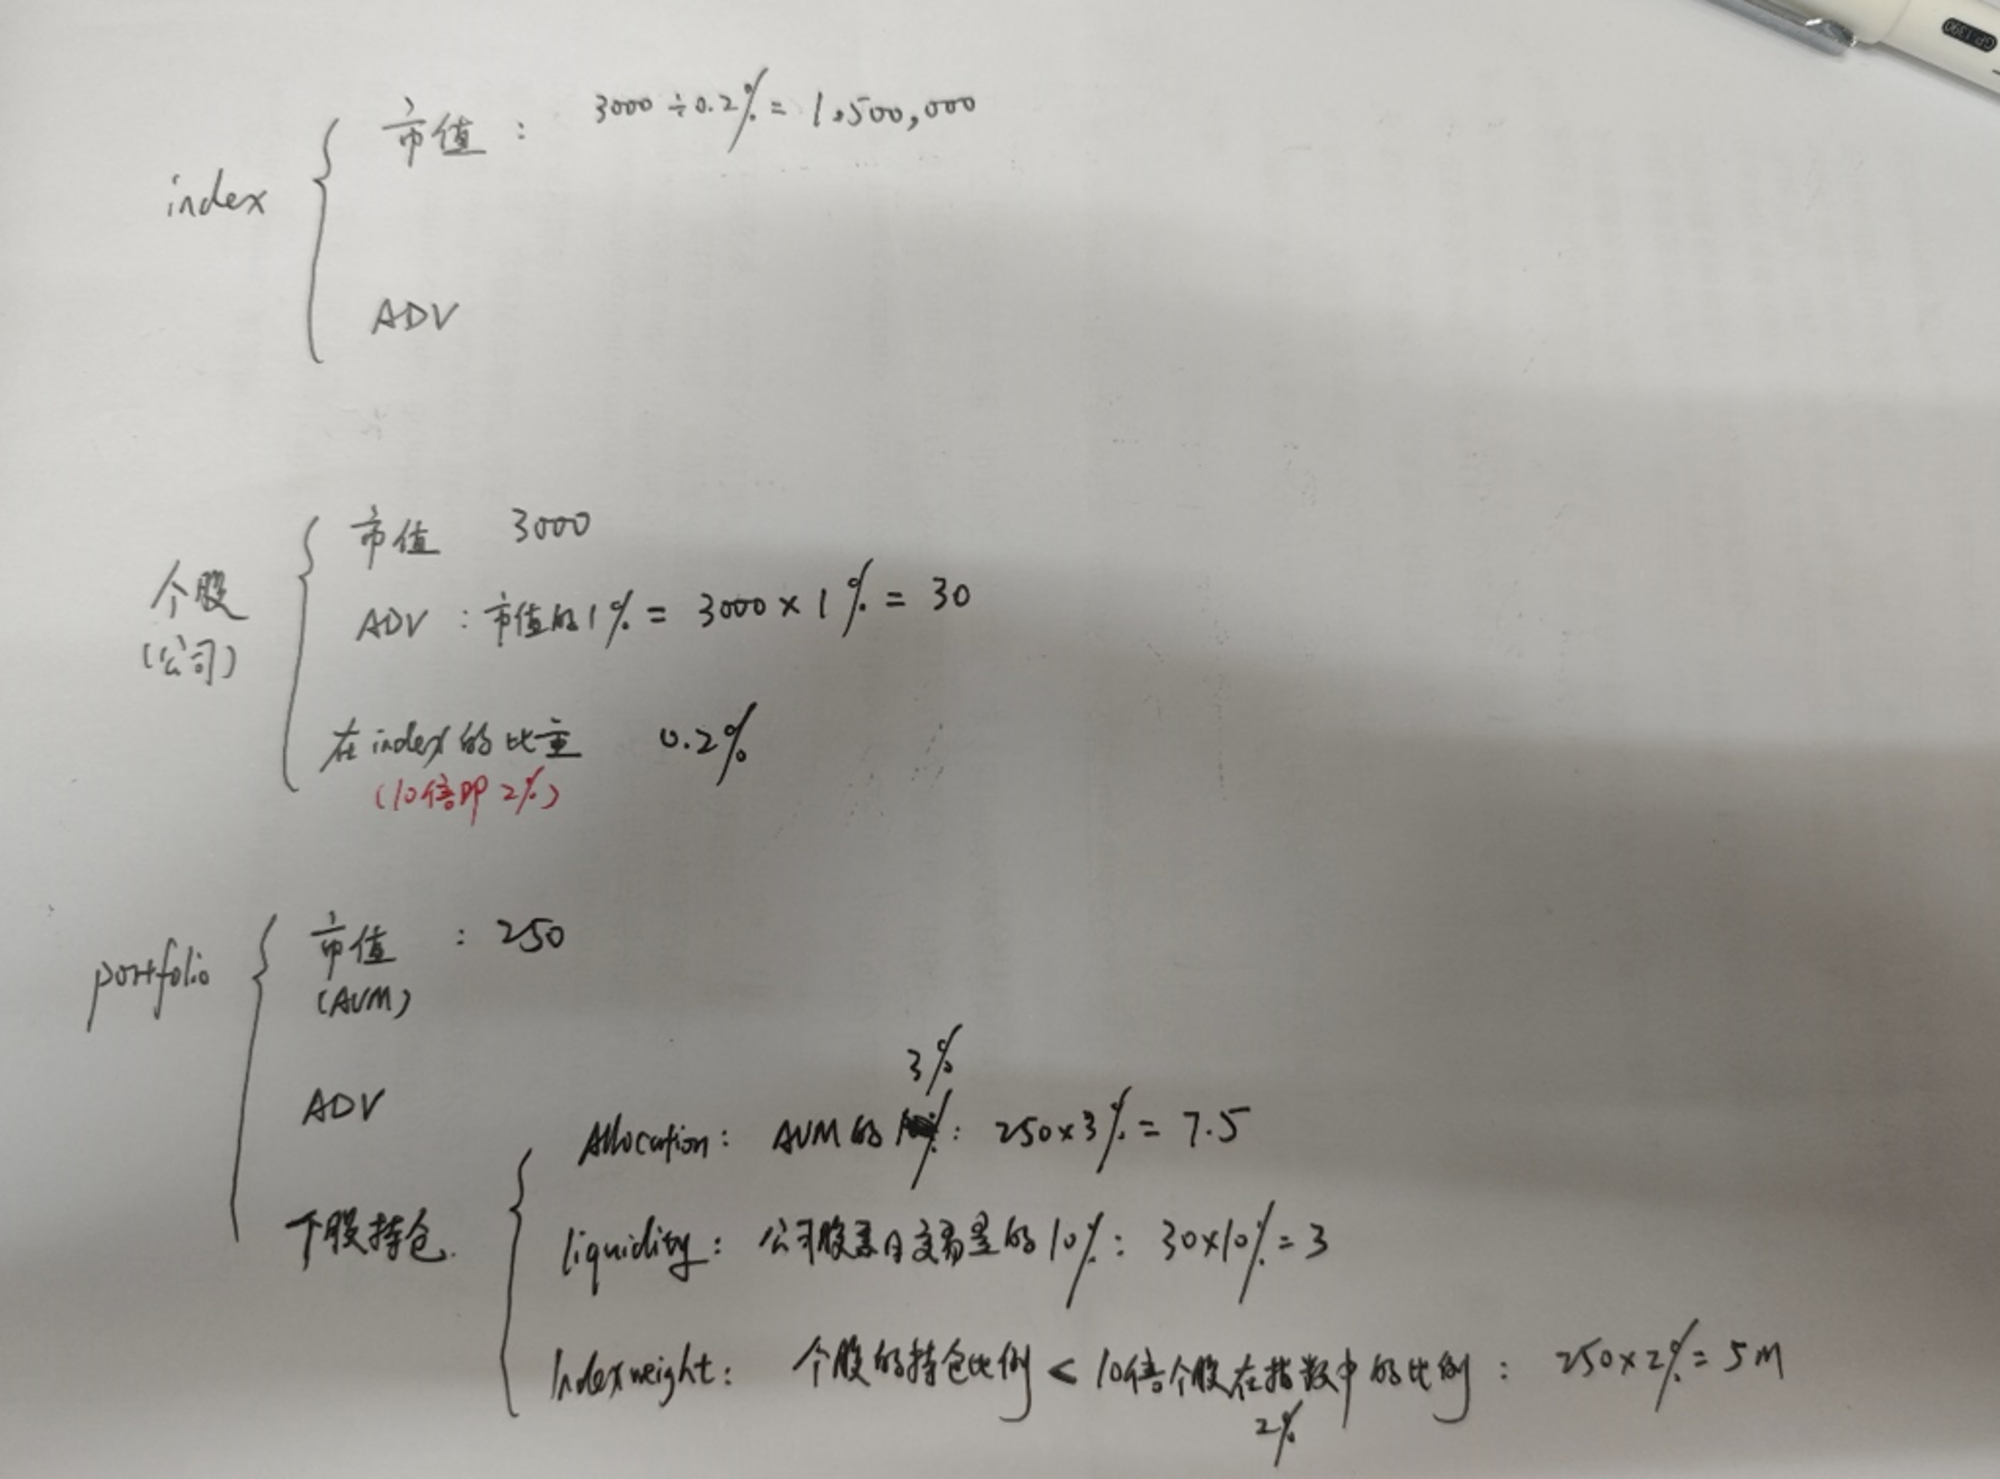 GP 1390
市值： 3000÷0.2%=1,500,000
index
ADV
市值 3000
个股
(公司)
ADV：市值的1%= 3000×1%=30
在index的比重 0.2%
(10倍即2%)
portfolio
市值：250
(AUM)
ADV
3%
Allocation： AUM的 ：250×3%=7.5
个股持仓
liquidity：公司股票日交易量的10%：30×10%=3
Index weight：个股的持仓比例<10倍个股在指数中的比例：250×2%=5M
2%